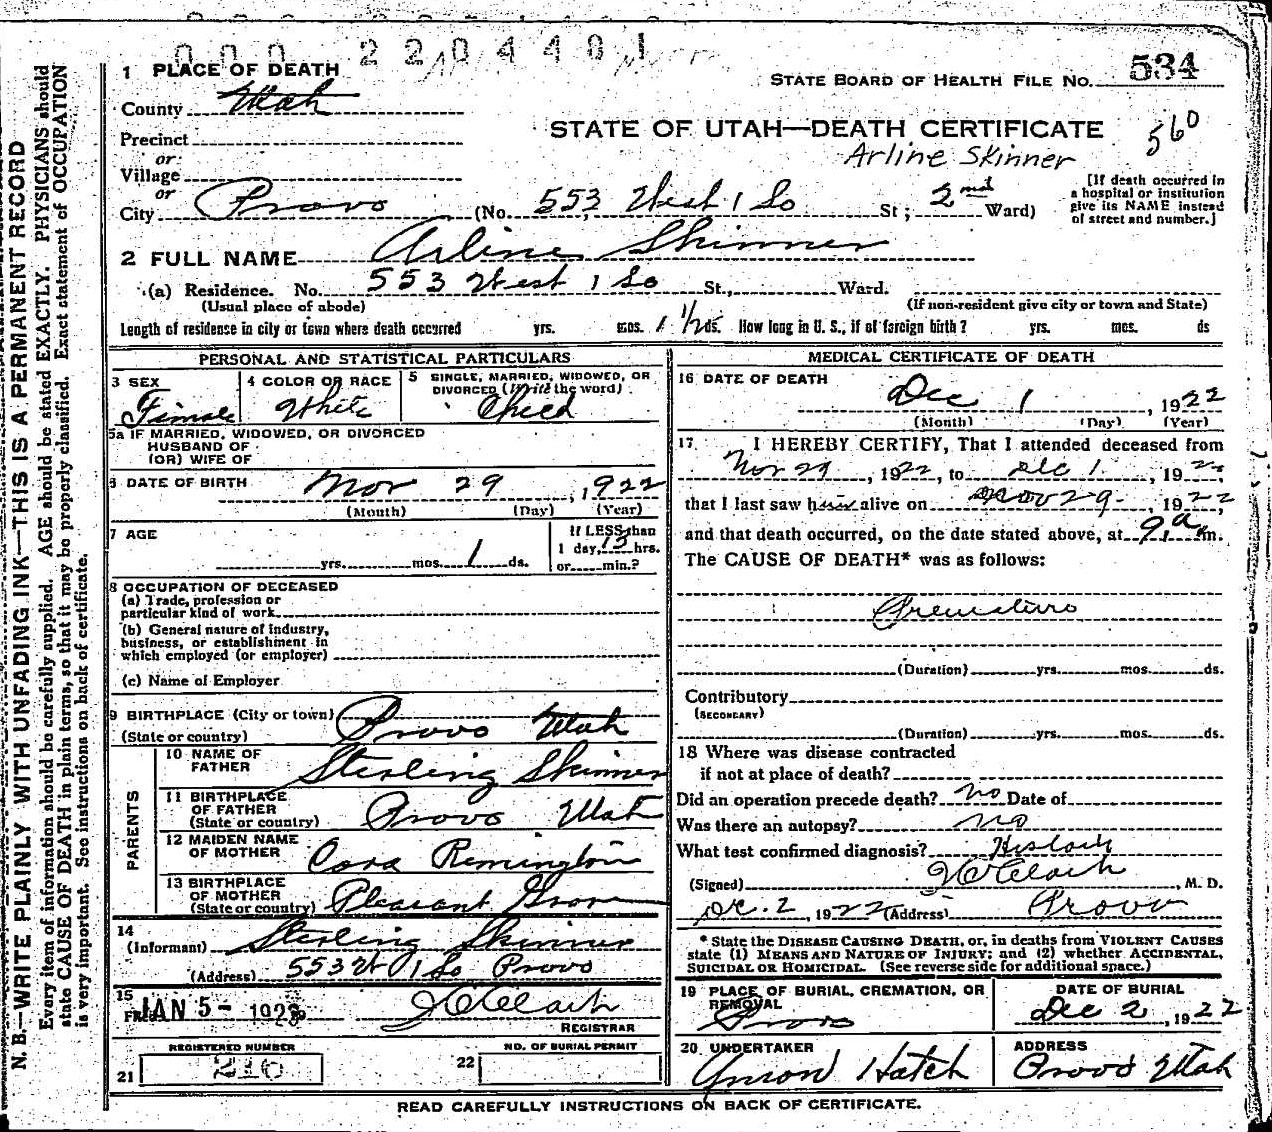 000 2204401
1 PLACE OF DEATH
STATE BOARD OF HEALTH FILE NO. 534
County Utah
STATE OF UTAH—DEATH CERTIFICATE
560
Precinct
Arline Skinner
or
Village
or
City Provo (No. 553 West 1 So St; 2nd Ward)
[If death occurred in
a hospital or institution
give its NAME instead
of street and number.]
2 FULL NAME Arline Skinner
(a) Residence. No. 553 West 1 So St., Ward.
(Usual place of abode) (If non-resident give city or town and State)
Length of residence in city or town where death occurred yrs. mos. 1 1/2 ds. How long in U. S., if of foreign birth? yrs. mos. ds
PERSONAL AND STATISTICAL PARTICULARS
3 SEX 4 COLOR OR RACE 5 SINGLE, MARRIED, WIDOWED, OR
DIVORCED (Write the word)
Female White Child
5a IF MARRIED, WIDOWED, OR DIVORCED
HUSBAND OF
(OR) WIFE OF
6 DATE OF BIRTH Nov 29, 1922
(Month) (Day) (Year)
7 AGE
yrs. mos. 1 ds.
If LESS than
1 day, 15 hrs.
or min.?
8 OCCUPATION OF DECEASED
(a) Trade, profession or
particular kind of work
(b) General nature of industry,
business, or establishment in
which employed (or employer)
(c) Name of Employer
9 BIRTHPLACE (City or town)
(State or country) Provo Utah
PARENTS
10 NAME OF
FATHER Sterling Skinner
11 BIRTHPLACE
OF FATHER
(State or country) Provo Utah
12 MAIDEN NAME
OF MOTHER Cora Remington
13 BIRTHPLACE
OF MOTHER
(State or country) Pleasant Grove
14
(Informant) Sterling Skinner
(Address) 553 W 1 So Provo
15
JAN 5 - 1923
REGISTRAR
REGISTERED NUMBER
21 216
NO. OF BURIAL PERMIT
22
MEDICAL CERTIFICATE OF DEATH
16 DATE OF DEATH
Dec 1, 1922
(Month) (Day) (Year)
17. I HEREBY CERTIFY, That I attended deceased from
Nov 29, 1922, to Dec 1, 192
that I last saw h alive on Nov 29, 1922,
and that death occurred, on the date stated above, at 9 a m.
The CAUSE OF DEATH* was as follows:
Premature
(Duration) yrs. mos. ds.
Contributory
(SECONDARY)
(Duration) yrs. mos. ds.
18 Where was disease contracted
if not at place of death?
Did an operation precede death? no Date of
Was there an autopsy? no
What test confirmed diagnosis? History
(Signed) M. D.
Dec. 2, 1922 (Address) Provo
* State the DISEASE CAUSING DEATH, or, in deaths from VIOLENT CAUSES
state (1) MEANS AND NATURE OF INJURY; and (2) whether ACCIDENTAL,
SUICIDAL OR HOMICIDAL. (See reverse side for additional space.)
19 PLACE OF BURIAL, CREMATION, OR
REMOVAL
Provo
DATE OF BURIAL
Dec 2, 1922
20 UNDERTAKER
Hatch
ADDRESS
Provo Utah
READ CAREFULLY INSTRUCTIONS ON BACK OF CERTIFICATE.
N. B.—WRITE PLAINLY WITH UNFADING INK—THIS IS A PERMANENT RECORD
Every item of information should be carefully supplied. AGE should be stated EXACTLY. PHYSICIANS should
state CAUSE OF DEATH in plain terms, so that it may be properly classified. Exact statement of OCCUPATION
is very important. See instructions on back of certificate.